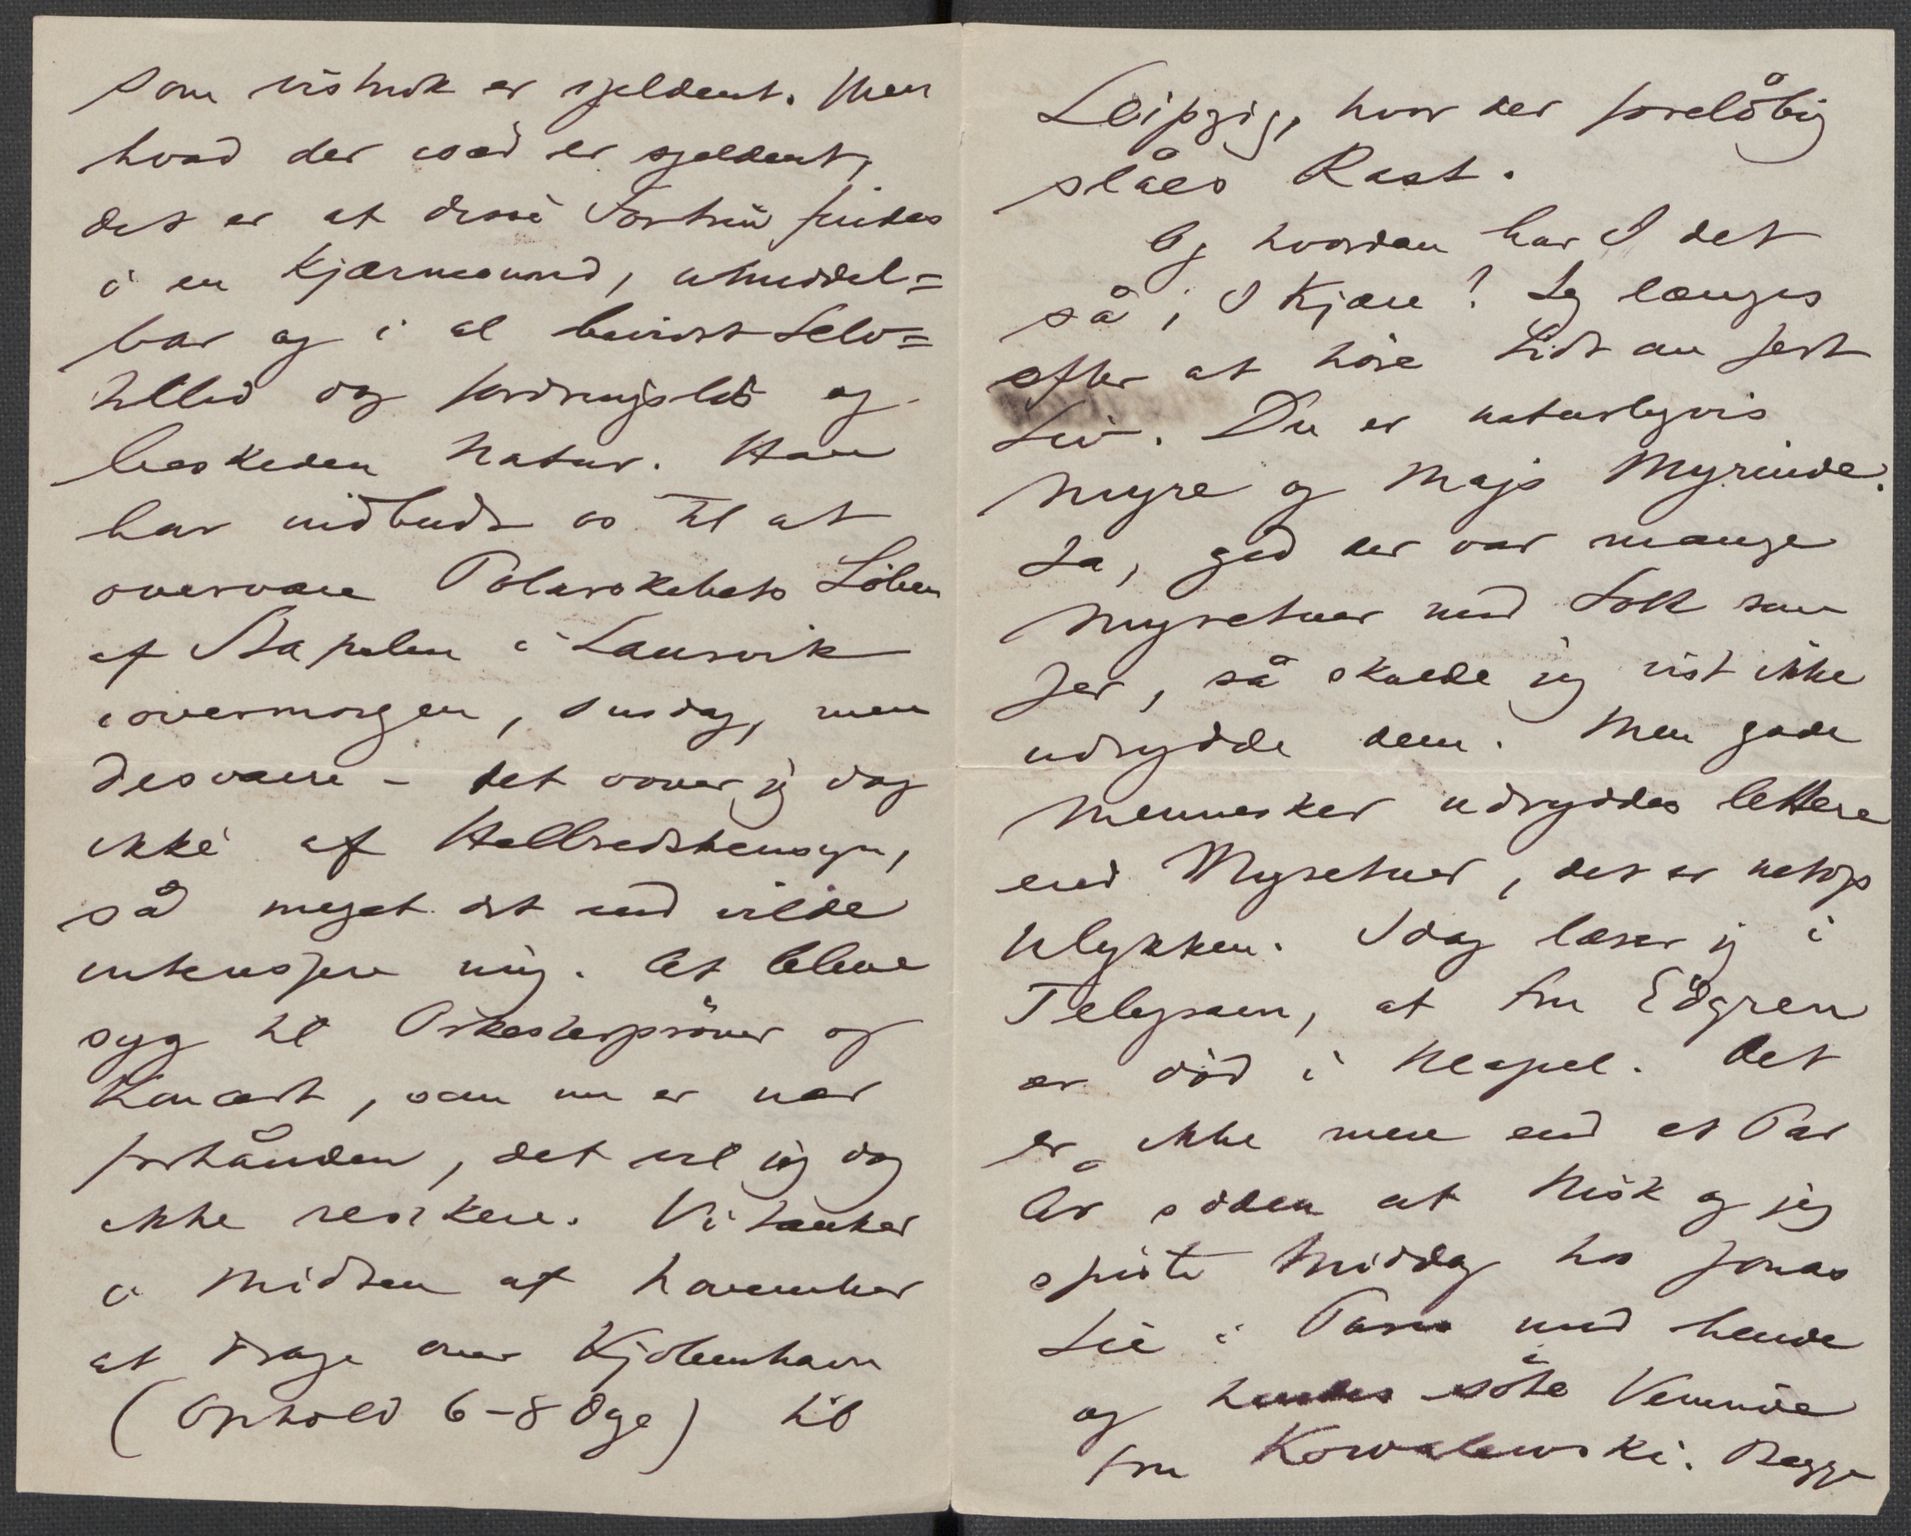 som vistnok er sjeldent. Men
hvad der især er sjeldent,
det er at disse Fortrin findes
i en Kjærnesund, umiddel=
bar og i al bevidst Selv=
tillid dog fordringsløs og
beskeden Natur. Han
har indbudt os til at
overvære Polarskibets Löben
af Stapelen i Laurvik
iovermorgen, Onsdag, men
desværre – det vover jeg dog
ikke af Helbredshensyn,
så meget det end vilde
interessere mig. At blive
syg til Orkesterpröver og
Koncert, som nu er nær
forhånden, det vil jeg dog
ikke resikere. Vi tænker
i Midten af November
at drage over Kjöbenhavn
(Ophold 6–8 Dge) til
Leipzig, hvor der forelöbig
slåes Rast.
Og hvordan har I det
så, I Kjære? Jeg længes
efter at höre Lidt om Jert
Liv. Du er naturligvis
Myre og Majs Myrinde.
Ja, gid der var mange
Myretuer med Folk som
Jer, så skulde jeg vist ikke
udrydde dem. Men gode
Mennesker udryddes lettere
end Myretuer, det er netop
Ulykken. Idag læser jeg i
Telegram, at Fru Edgren
er död i Neapel. Det
er ikke mere end et Par
År siden at Nisk og jeg
spiste Middag hos Jonas
Lie i Paris med hende
og hendes söte Veninde
Fru Kowalewski. Begge